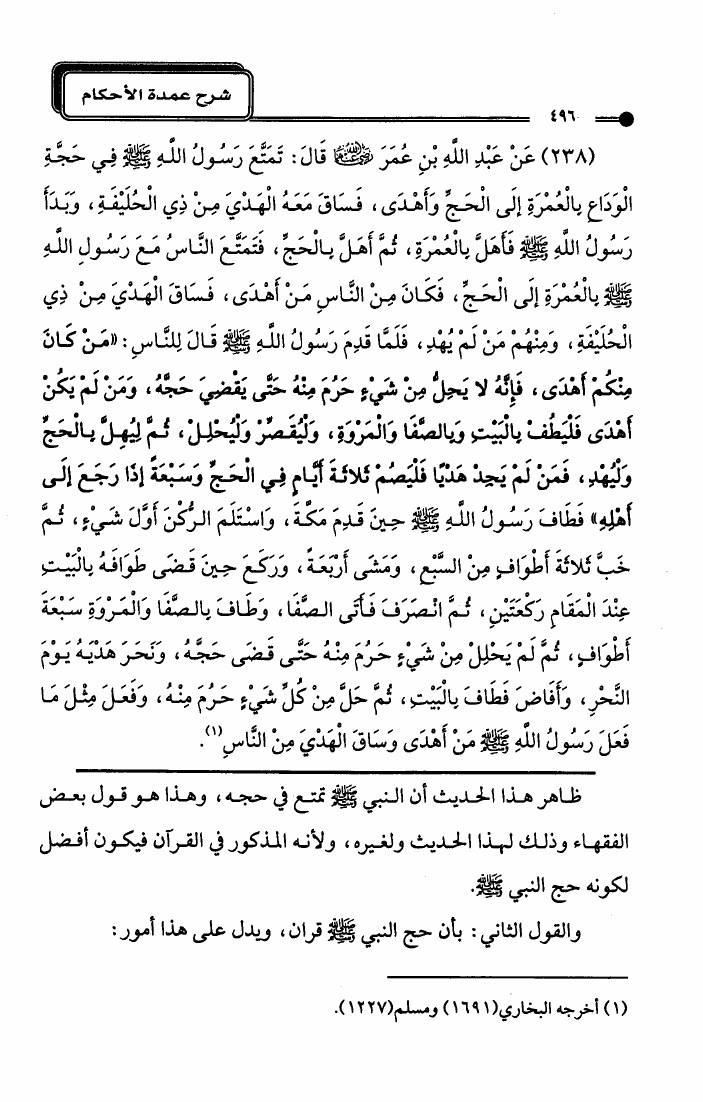 شرح عمدة الأحكام
٤٩٦
(٢٣٨) عَنْ عَبْدِ اللَّهِ بْنِ عُمَرَ رضي الله عنهما قَالَ: تَمَتَّعَ رَسُولُ اللَّهِ ﷺ فِي حَجَّةِ
الْوَدَاعِ بِالْعُمْرَةِ إِلَى الْحَجِّ وَأَهْدَى، فَسَاقَ مَعَهُ الْهَدْيَ مِنْ ذِي الْحُلَيْفَةِ، وَبَدَأَ
رَسُولُ اللَّهِ ﷺ فَأَهَلَّ بِالْعُمْرَةِ، ثُمَّ أَهَلَّ بِالْحَجِّ، فَتَمَتَّعَ النَّاسُ مَعَ رَسُولِ اللَّهِ
ﷺ بِالْعُمْرَةِ إِلَى الْحَجِّ، فَكَانَ مِنْ النَّاسِ مَنْ أَهْدَى، فَسَاقَ الْهَدْيَ مِنْ ذِي
الْحُلَيْفَةِ، وَمِنْهُمْ مَنْ لَمْ يُهْدِ، فَلَمَّا قَدِمَ رَسُولُ اللَّهِ ﷺ قَالَ لِلنَّاسِ: «مَنْ كَانَ
مِنْكُمْ أَهْدَى، فَإِنَّهُ لا يَحِلُّ مِنْ شَيْءٍ حَرُمَ مِنْهُ حَتَّى يَقْضِيَ حَجَّهُ، وَمَنْ لَمْ يَكُنْ
أَهْدَى فَلْيَطُفْ بِالْبَيْتِ وَبِالصَّفَا وَالْمَرْوَةِ، وَلْيُقَصِّرْ وَلْيُحْلِلْ، ثُمَّ لِيُهِلَّ بِالْحَجِّ
وَلْيُهْدِ، فَمَنْ لَمْ يَجِدْ هَدْيًا فَلْيَصُمْ ثَلاثَةَ أَيَّامٍ فِي الْحَجِّ وَسَبْعَةً إِذَا رَجَعَ إِلَى
أَهْلِهِ» فَطَافَ رَسُولُ اللَّهِ ﷺ حِينَ قَدِمَ مَكَّةَ، وَاسْتَلَمَ الرُّكْنَ أَوَّلَ شَيْءٍ، ثُمَّ
خَبَّ ثَلاثَةَ أَطْوَافٍ مِنْ السَّبْعِ، وَمَشَى أَرْبَعَةً، وَرَكَعَ حِينَ قَضَى طَوَافَهُ بِالْبَيْتِ
عِنْدَ الْمَقَامِ رَكْعَتَيْنِ، ثُمَّ انْصَرَفَ فَأَتَى الصَّفَا، وَطَافَ بِالصَّفَا وَالْمَرْوَةِ سَبْعَةَ
أَطْوَافٍ، ثُمَّ لَمْ يَحْلِلْ مِنْ شَيْءٍ حَرُمَ مِنْهُ حَتَّى قَضَى حَجَّهُ، وَنَحَرَ هَدْيَهُ يَوْمَ
النَّحْرِ، وَأَفَاضَ فَطَافَ بِالْبَيْتِ، ثُمَّ حَلَّ مِنْ كُلِّ شَيْءٍ حَرُمَ مِنْهُ، وَفَعَلَ مِثْلَ مَا
فَعَلَ رَسُولُ اللَّهِ ﷺ مَنْ أَهْدَى وَسَاقَ الْهَدْيَ مِنْ النَّاسِ(١).
ظاهر هذا الحديث أن النبي ﷺ تمتع في حجه، وهذا هو قول بعض
الفقهاء وذلك لهذا الحديث ولغيره، ولأنه المذكور في القرآن فيكون أفضل
لكونه حج النبي ﷺ.
والقول الثاني: بأن حج النبي ﷺ قران، ويدل على هذا أمور:
(١) أخرجه البخاري(١٦٩١) ومسلم(١٢٢٧).